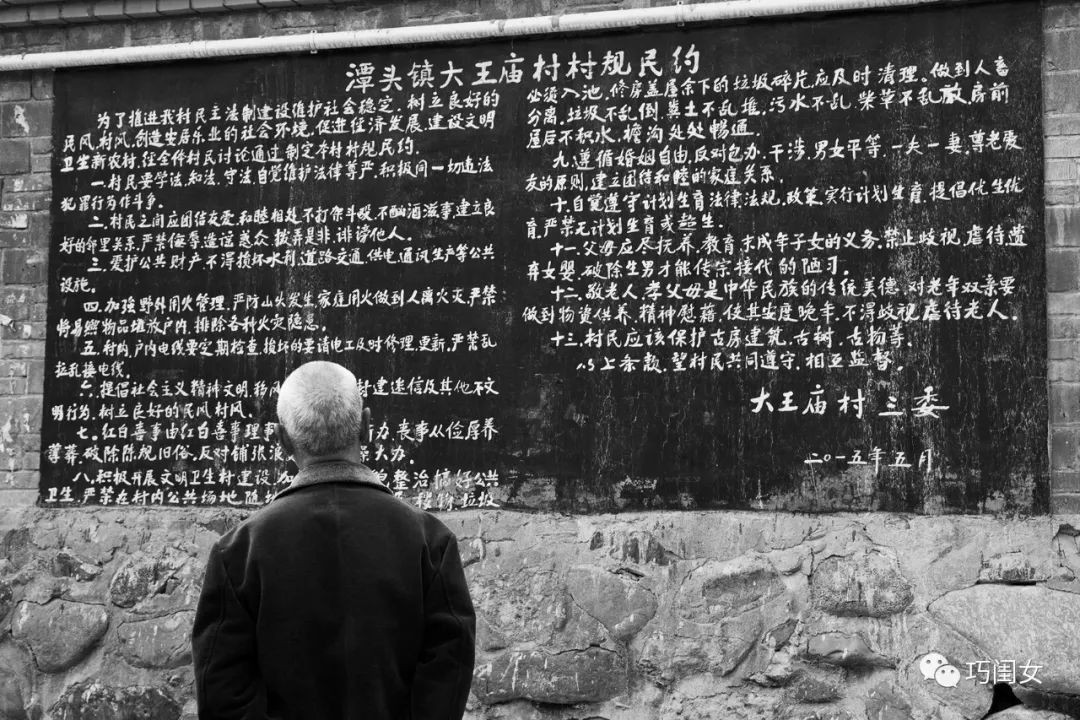 潭头镇大王庙村村规民约
为了推进我村民主法制建设维护社会稳定,树立良好的
民风,村风,创造安居乐业的社会环境,促进经济发展,建设文明
卫生新农村,经全体村民讨论通过制定本村村规民约。
一.村民要学法,知法,守法,自觉维护法律尊严,积极同一切违法
犯罪行为作斗争。
二.村民之间应团结友爱,和睦相处,不打架斗殴,不酗酒滋事,建立良
好的邻里关系,严禁侮辱,造谣惑众,拨弄是非,诽谤他人。
三.爱护公共财产,不得损坏水利,道路交通,供电,通讯,生产等公共
设施。
四.加强野外用火管理,严防山火发生,家庭用火做到人离火灭,严禁
将易燃物品堆放户内,排除各种火灾隐患。
五.村内,户内电线要定期检查,损坏的要请电工及时修理,更新,严禁乱
拉乱接电线。
六.提倡社会主义精神文明,移风 封建迷信及其他不文
明行为,树立良好的民风村风。
七.红白喜事由红白喜事理事 办,丧事从俭厚养
薄葬,破除陈规旧俗,反对铺张浪 大办.
八.积极开展文明卫生村建设,加 整治搞好公共
卫生,严禁在村内公共场地,随 垃圾
必须入池,修房盖屋余下的垃圾碎片,应及时清理。做到人畜
分离,垃圾不乱倒,粪土不乱堆,污水不乱,柴草不乱放,房前
屋后不积水,檐沟处处畅通。
九.遵循婚姻自由,反对包办,干涉,男女平等,一夫一妻,尊老爱
友的原则,建立团结和睦的家庭关系。
十.自觉遵守计划生育法律,法规,政策,实行计划生育,提倡优生优
育,严禁无计划生育或超生。
十一.父母应尽抚养,教育未成年子女的义务,禁止歧视,虐待,遗
弃女婴,破除生男才能传宗接代的陋习。
十二.敬老人,孝父母是中华民族的传统美德,对老年双亲要
做到物资供养,精神慰藉,使其安度晚年,不得歧视,虐待老人。
十三.村民应该保护古房建筑,古树,古物等。
以上条款,望村民共同遵守,相互监督。
大王庙村三委
二〇一五年五月
巧闺女